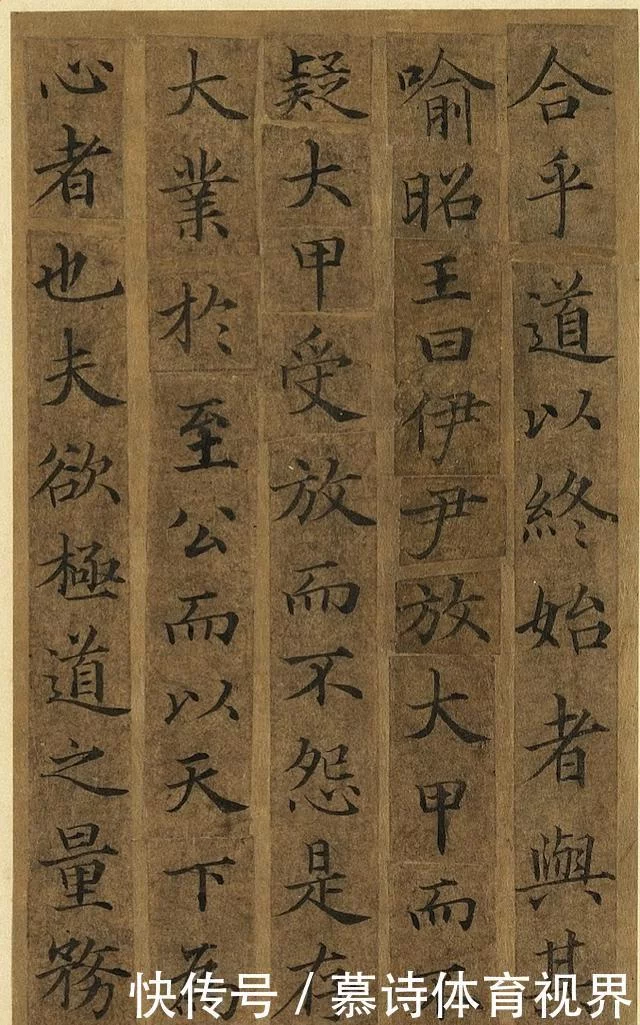 合乎道以終始者與其
喻昭王曰伊尹放大甲而不
疑大甲受放而不怨是存
大業於至公而以天下為
心者也夫欲極道之量務
快传号 / 慕诗体育视界